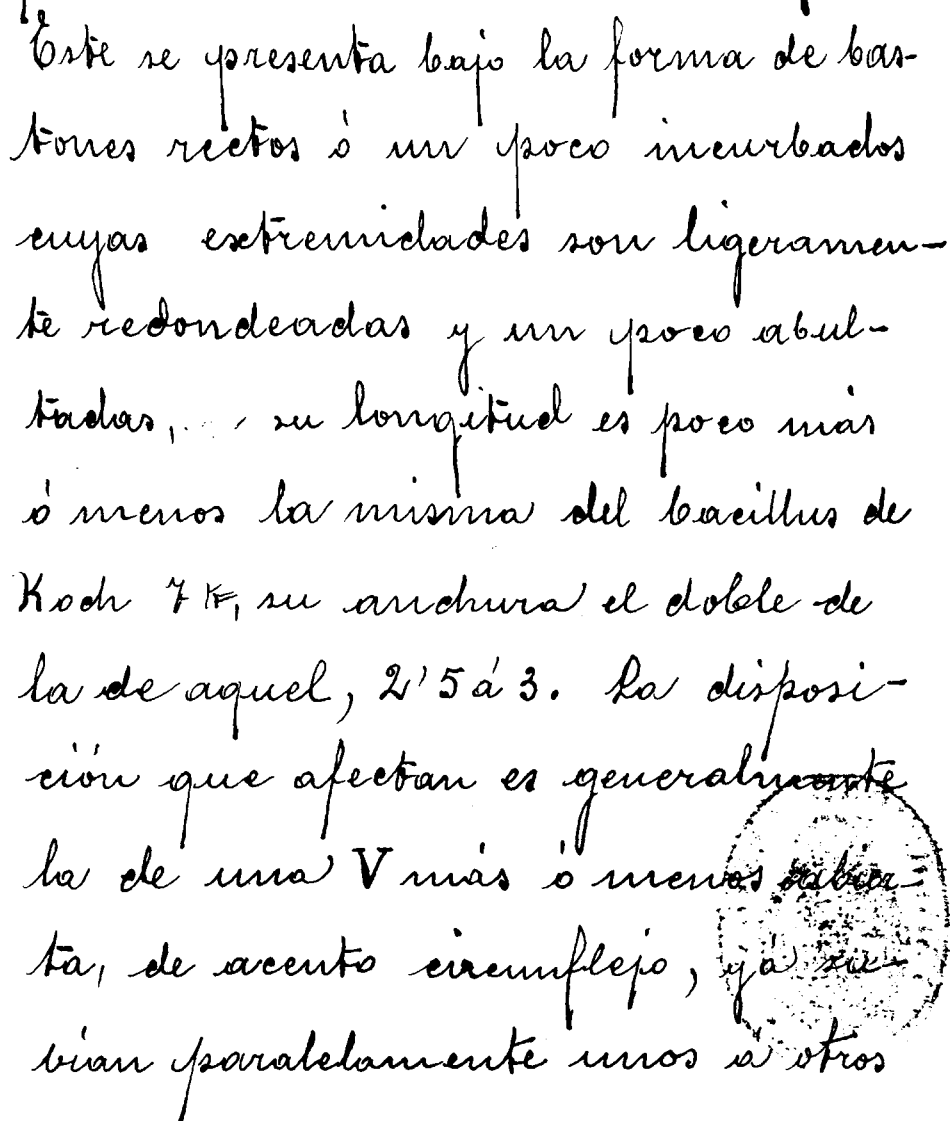 Este se presenta bajo la forma de bas-
tones rectos ó un poco incurbados
cuyas extremidades son ligeramen-
te redondeadas y un poco abul-
tadas, su longitud es poco más
ó menos la misma del bacillus de
Koch 7 su anchura el doble de
la de aquel, 2'5 á 3. La disposi-
ción que afectan es generalmente
la de una V más ó menos abier-
ta, de acento circunflejo, yá
paralelamente unos á otros